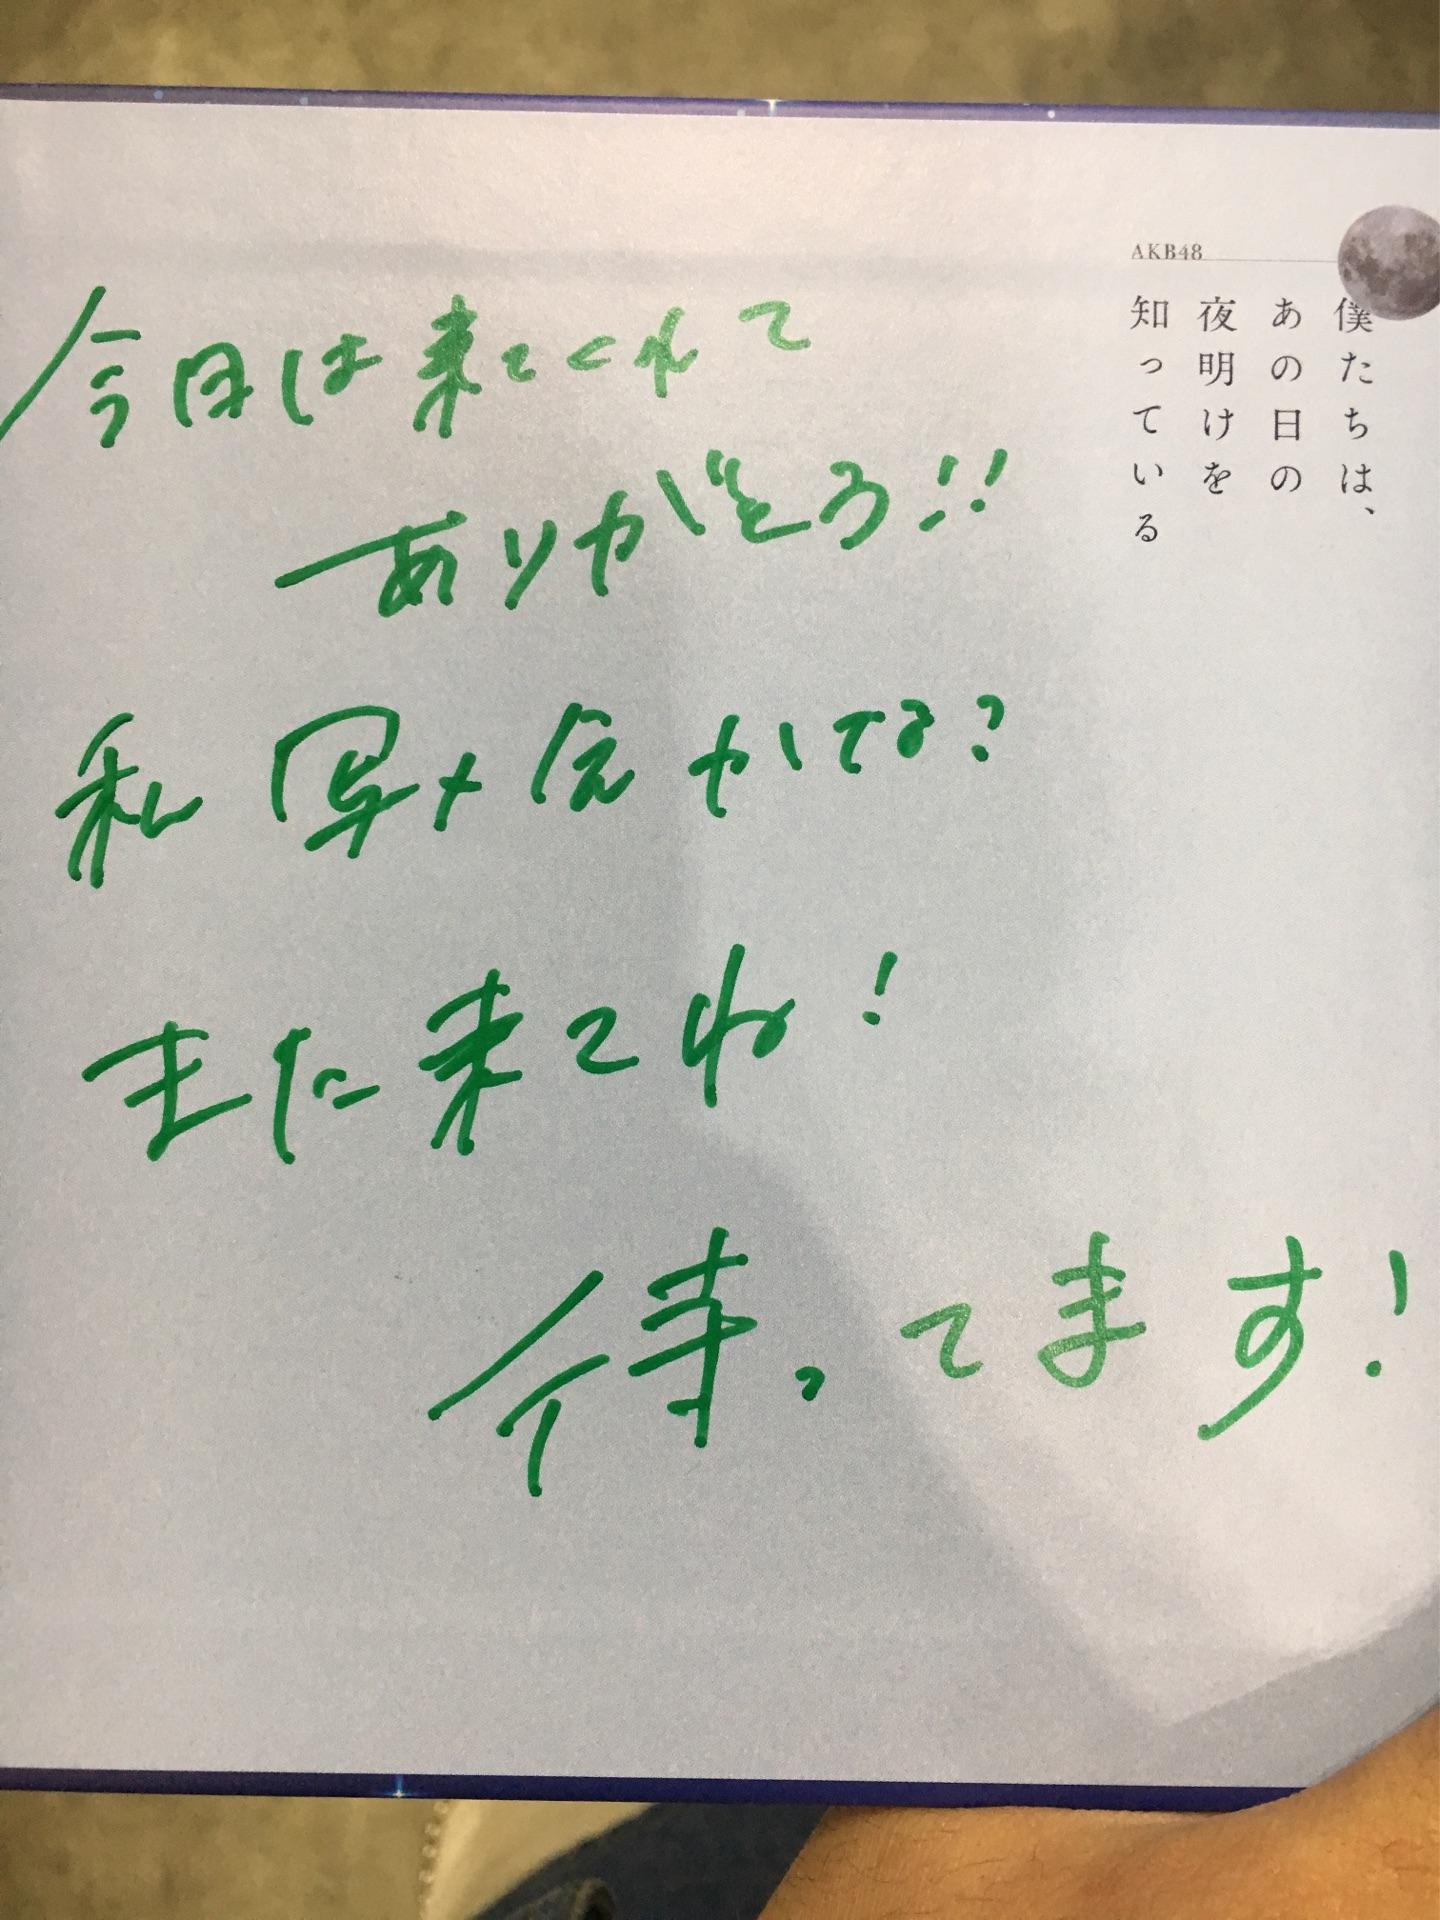 AKB48
僕たちは、
あの日の
夜明けを
知っている
今日は来てくれて
ありがとう!!
私写メ会かてる?
また来てね!
待ってます!